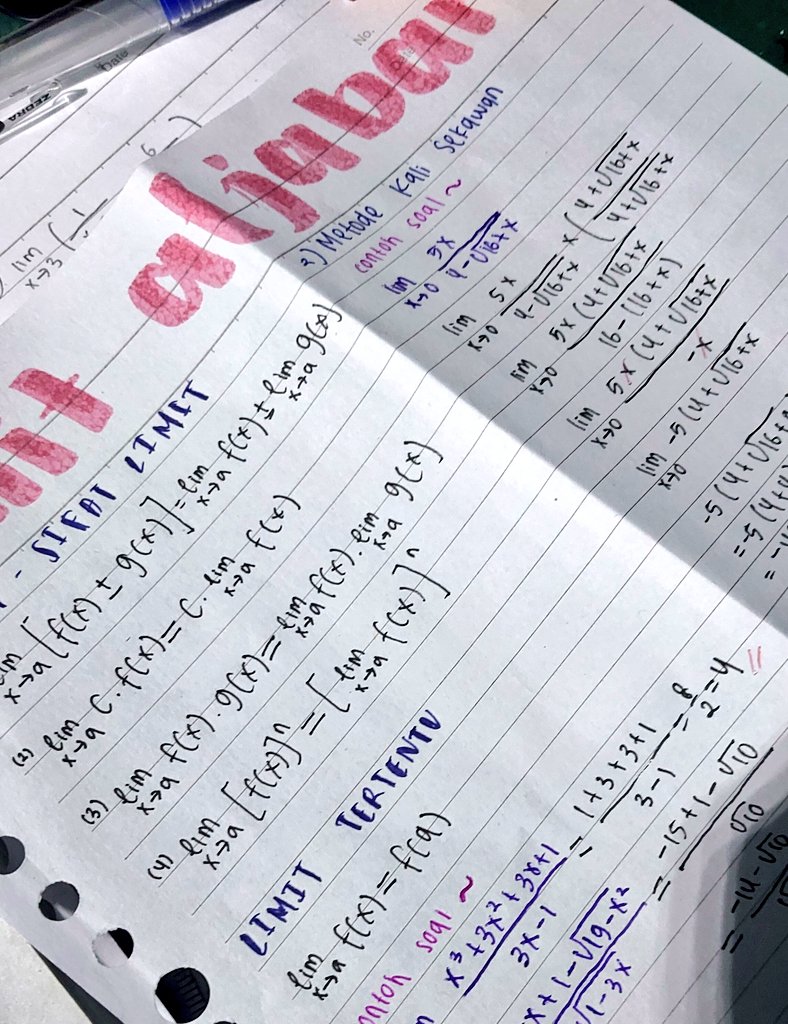 ZEBRA
Date
No.
Date
lim x→3 ( 1
6
aljabar
- SIFAT LIMIT
lim x→a [f(x) ± g(x)] = lim x→a f(x) ± lim x→a g(x)
(2) lim x→a C. f(x) = C. lim x→a f(x)
(3) lim x→a f(x). g(x) = lim x→a f(x). lim x→a g(x)
(4) lim x→a [f(x)]ⁿ = [lim x→a f(x)]ⁿ
LIMIT TERTENTU
lim x→a f(x) = f(a)
contoh soal ~
x³+3x²+3x+1 / 3x-1 = 1+3+3+1 / 3-1 = 8/2 = 4 //
x+1-√19-x² / √1-3x = -15+1-√10 / √10
= -14-√10
2) Metode Kali Sekawan
contoh soal ~
lim x→0 5x / 4-√16+x
lim x→0 5x / 4-√16+x × (4+√16+x / 4+√16+x
lim x→0 5x (4+√16+x / 16-(16+x)
lim x→0 5x (4+√16+x / -x
lim x→0 -5(4+√16+x
-5(4+√16+
= -5(4+4